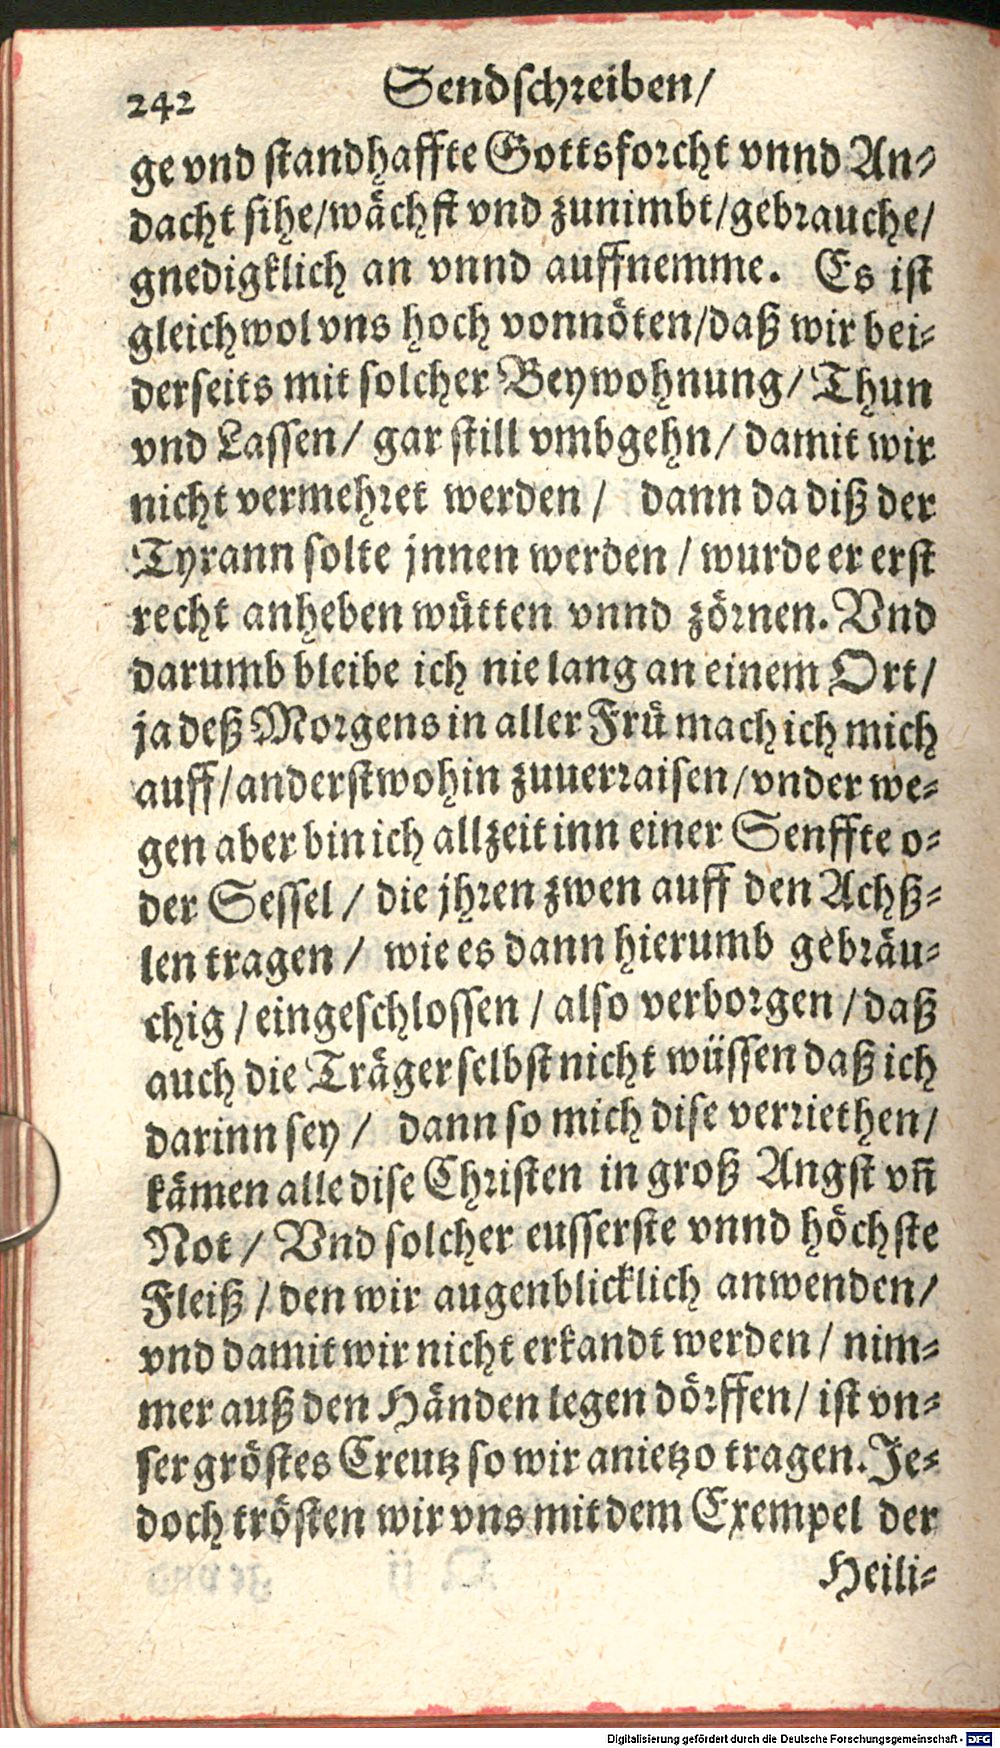 242 Sendschreiben/
ge vnd standhaffte Gottsforcht vnnd An-
dacht sihe/wächst vnd zunimbt/gebrauche/
gnedigklich an vnnd auffnemme. Es ist
gleichwol vns hoch vonnöten/daß wir bei-
derseits mit solcher Beywohnung/ Thun
vnd Lassen/ gar still vmbgehn/ damit wir
nicht vermehret werden/ dann da diß der
Tyrann solte jnnen werden/ wurde er erst
recht anheben wütten vnnd zörnen. Vnd
darumb bleibe ich nie lang an einem Ort/
ja deß Morgens in aller Frü mach ich mich
auff/anderstwohin zuuerraisen/vnder we-
gen aber bin ich allzeit inn einer Senffte o-
der Sessel/ die jhren zwen auff den Achß-
len tragen/ wie es dann hierumb gebräu-
chig/eingeschlossen/also verborgen/daß
auch die Träger selbst nicht wüssen daß ich
darinn sey/ dann so mich dise verriethen/
kämen alle dise Christen in groß Angst vñ
Not/ Vnd solcher eusserste vnnd höchste
Fleiß/den wir augenblicklich anwenden/
vnd damit wir nicht erkandt werden/ nim-
mer auß den Händen legen dörffen/ ist vn-
ser gröstes Creutz so wir anietzo tragen. Je-
doch trösten wir vns mit dem Exempel der
Heili-
Digitalisierung gefördert durch die Deutsche Forschungsgemeinschaft - DFG